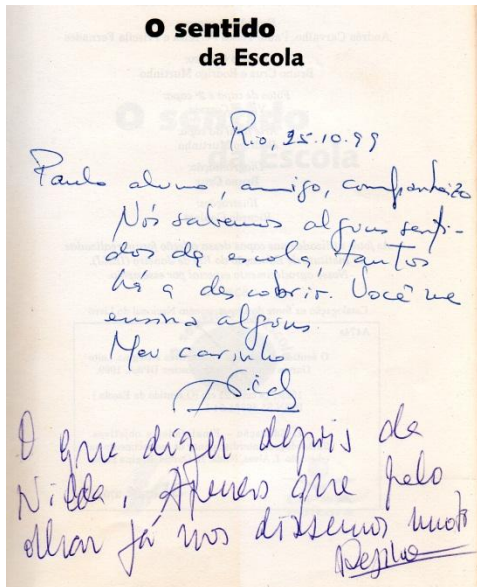 O sentido
da Escola
Rio, 25.10.99
Paulo aluno amigo, companheiro
Nós sabemos alguns senti-
dos da escola, tantos
há a descobrir. Você me
ensina alguns
Meu carinho
O que dizer depois da
Nilda, Apenas que pelo
olhar já nos dissemos muito
Regina